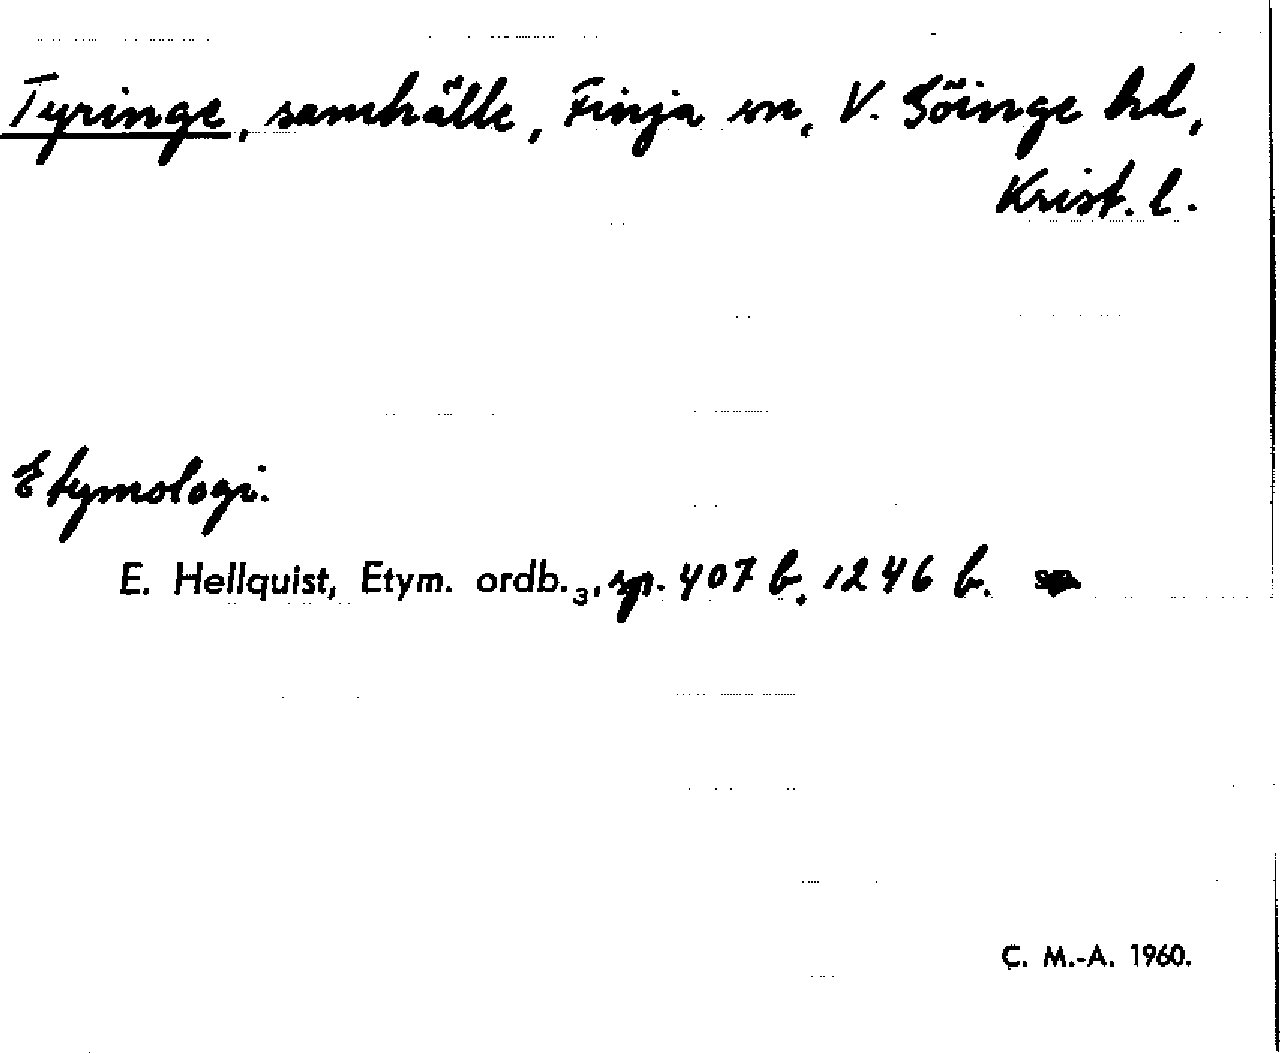 Tyringe, samhälle, Finja sn, V. Göinge hd,
Krist. l.
Etymologi.
E. Hellquist, Etym. ordb.₃, sp. 407 b, 1246 b.
C. M.-A. 1960.